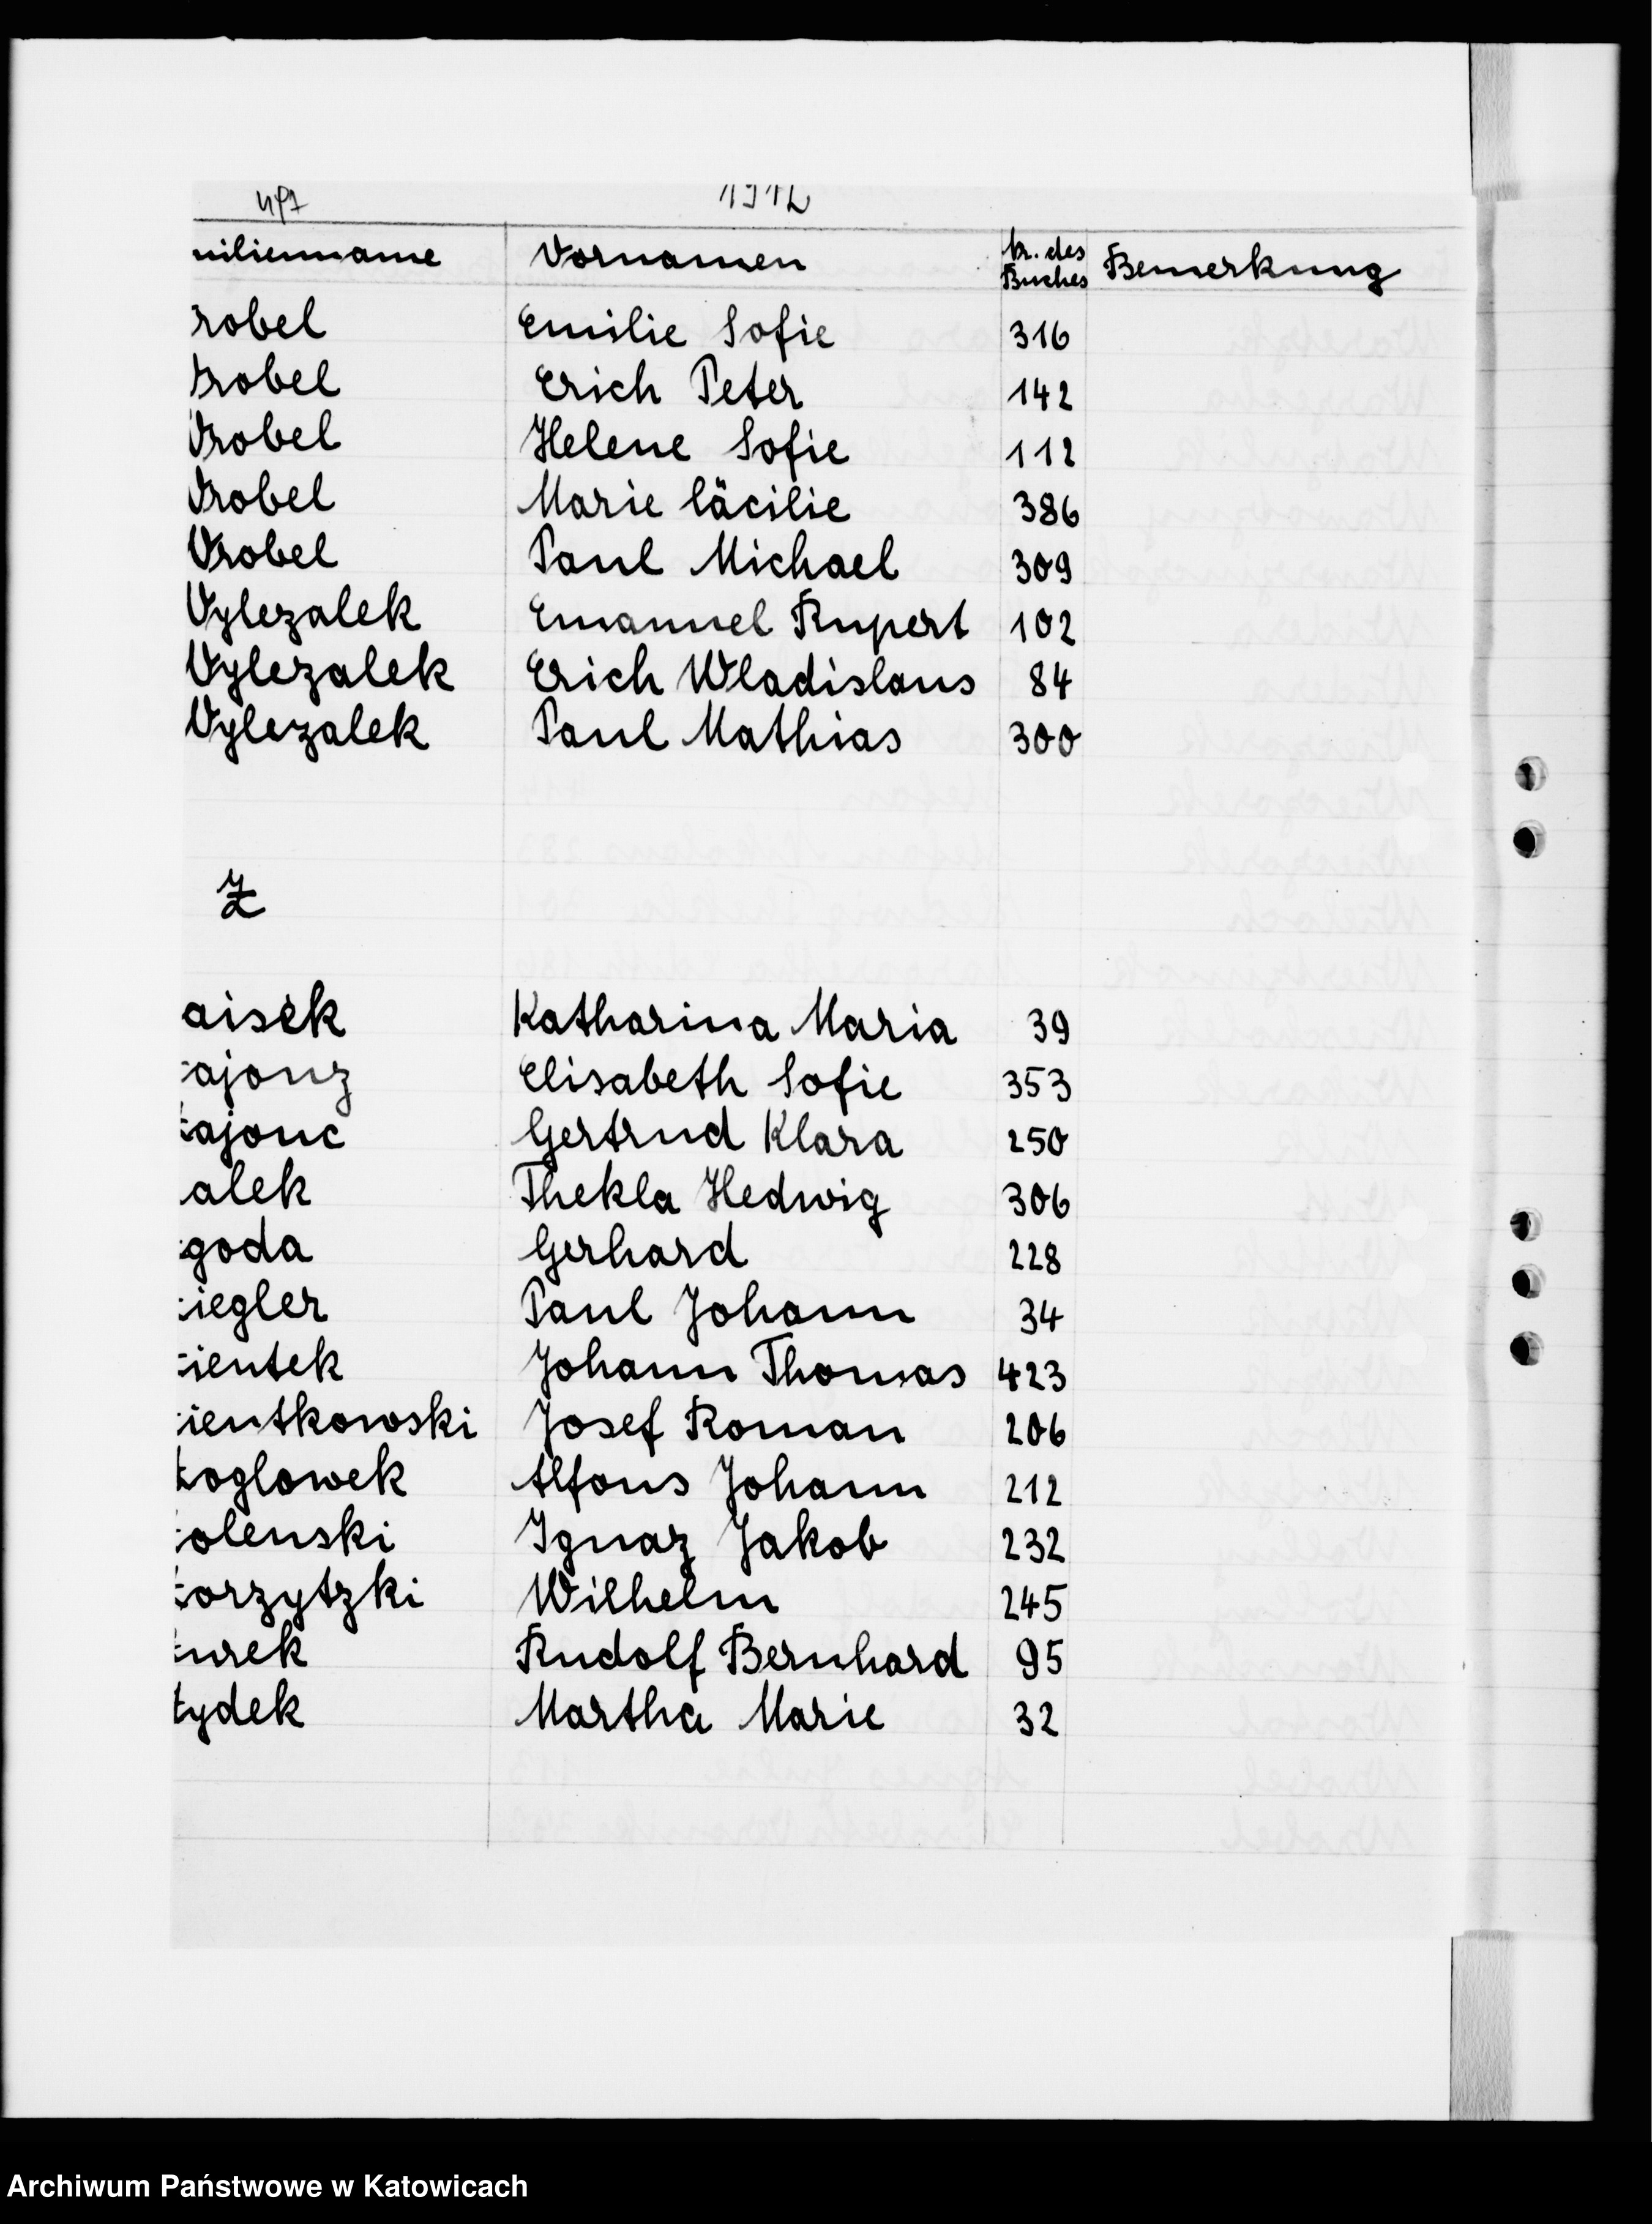 1912
milienname Vornamen Nr. des Buches Bemerkung
robel Emilie Sofie 316
robel Erich Peter 142
robel Helene Sofie 112
robel Marie Cäcilie 386
Wrobel Paul Michael 309
Wylezalek Emanuel Rupert 102
Wylezalek Erich Wladislaus 84
Wylezalek Paul Mathias 300
Z
aisek Katharina Maria 39
ajonz Elisabeth Sofie 353
ajonc Gertrud Klara 250
alek Thekla Hedwig 306
goda Gerhard 228
iegler Paul Johann 34
ientek Johann Thomas 423
ientkowski Josef Roman 206
oglowek Alfons Johann 212
olenski Ignaz Jakob 232
orzytzki Wilhelm 245
urek Rudolf Bernhard 95
ydek Martha Marie 32
Archiwum Państwowe w Katowicach